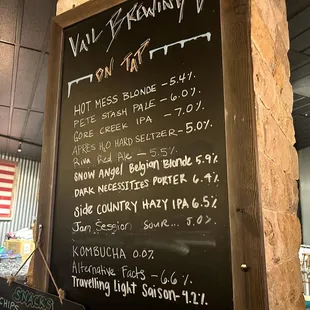 VAIL BREWING
ON TAP
HOT MESS BLONDE - 5.4%
PETE STASH PALE - 6.0%
GORE CREEK IPA - 7.0%
APRÈS H2O HARD SELTZER - 5.0%
Riva Red Ale - 5.5%
SNOW Angel Belgian Blonde 5.9%
DARK NECESSITIES PORTER 6.4%
Side COUNTRY HAZY IPA 6.5%
Jam Session Sour... 5.0%
KOMBUCHA 0.0%
Alternative Facts - 6.6%
Travelling Light Saison - 4.2%
SNACKS